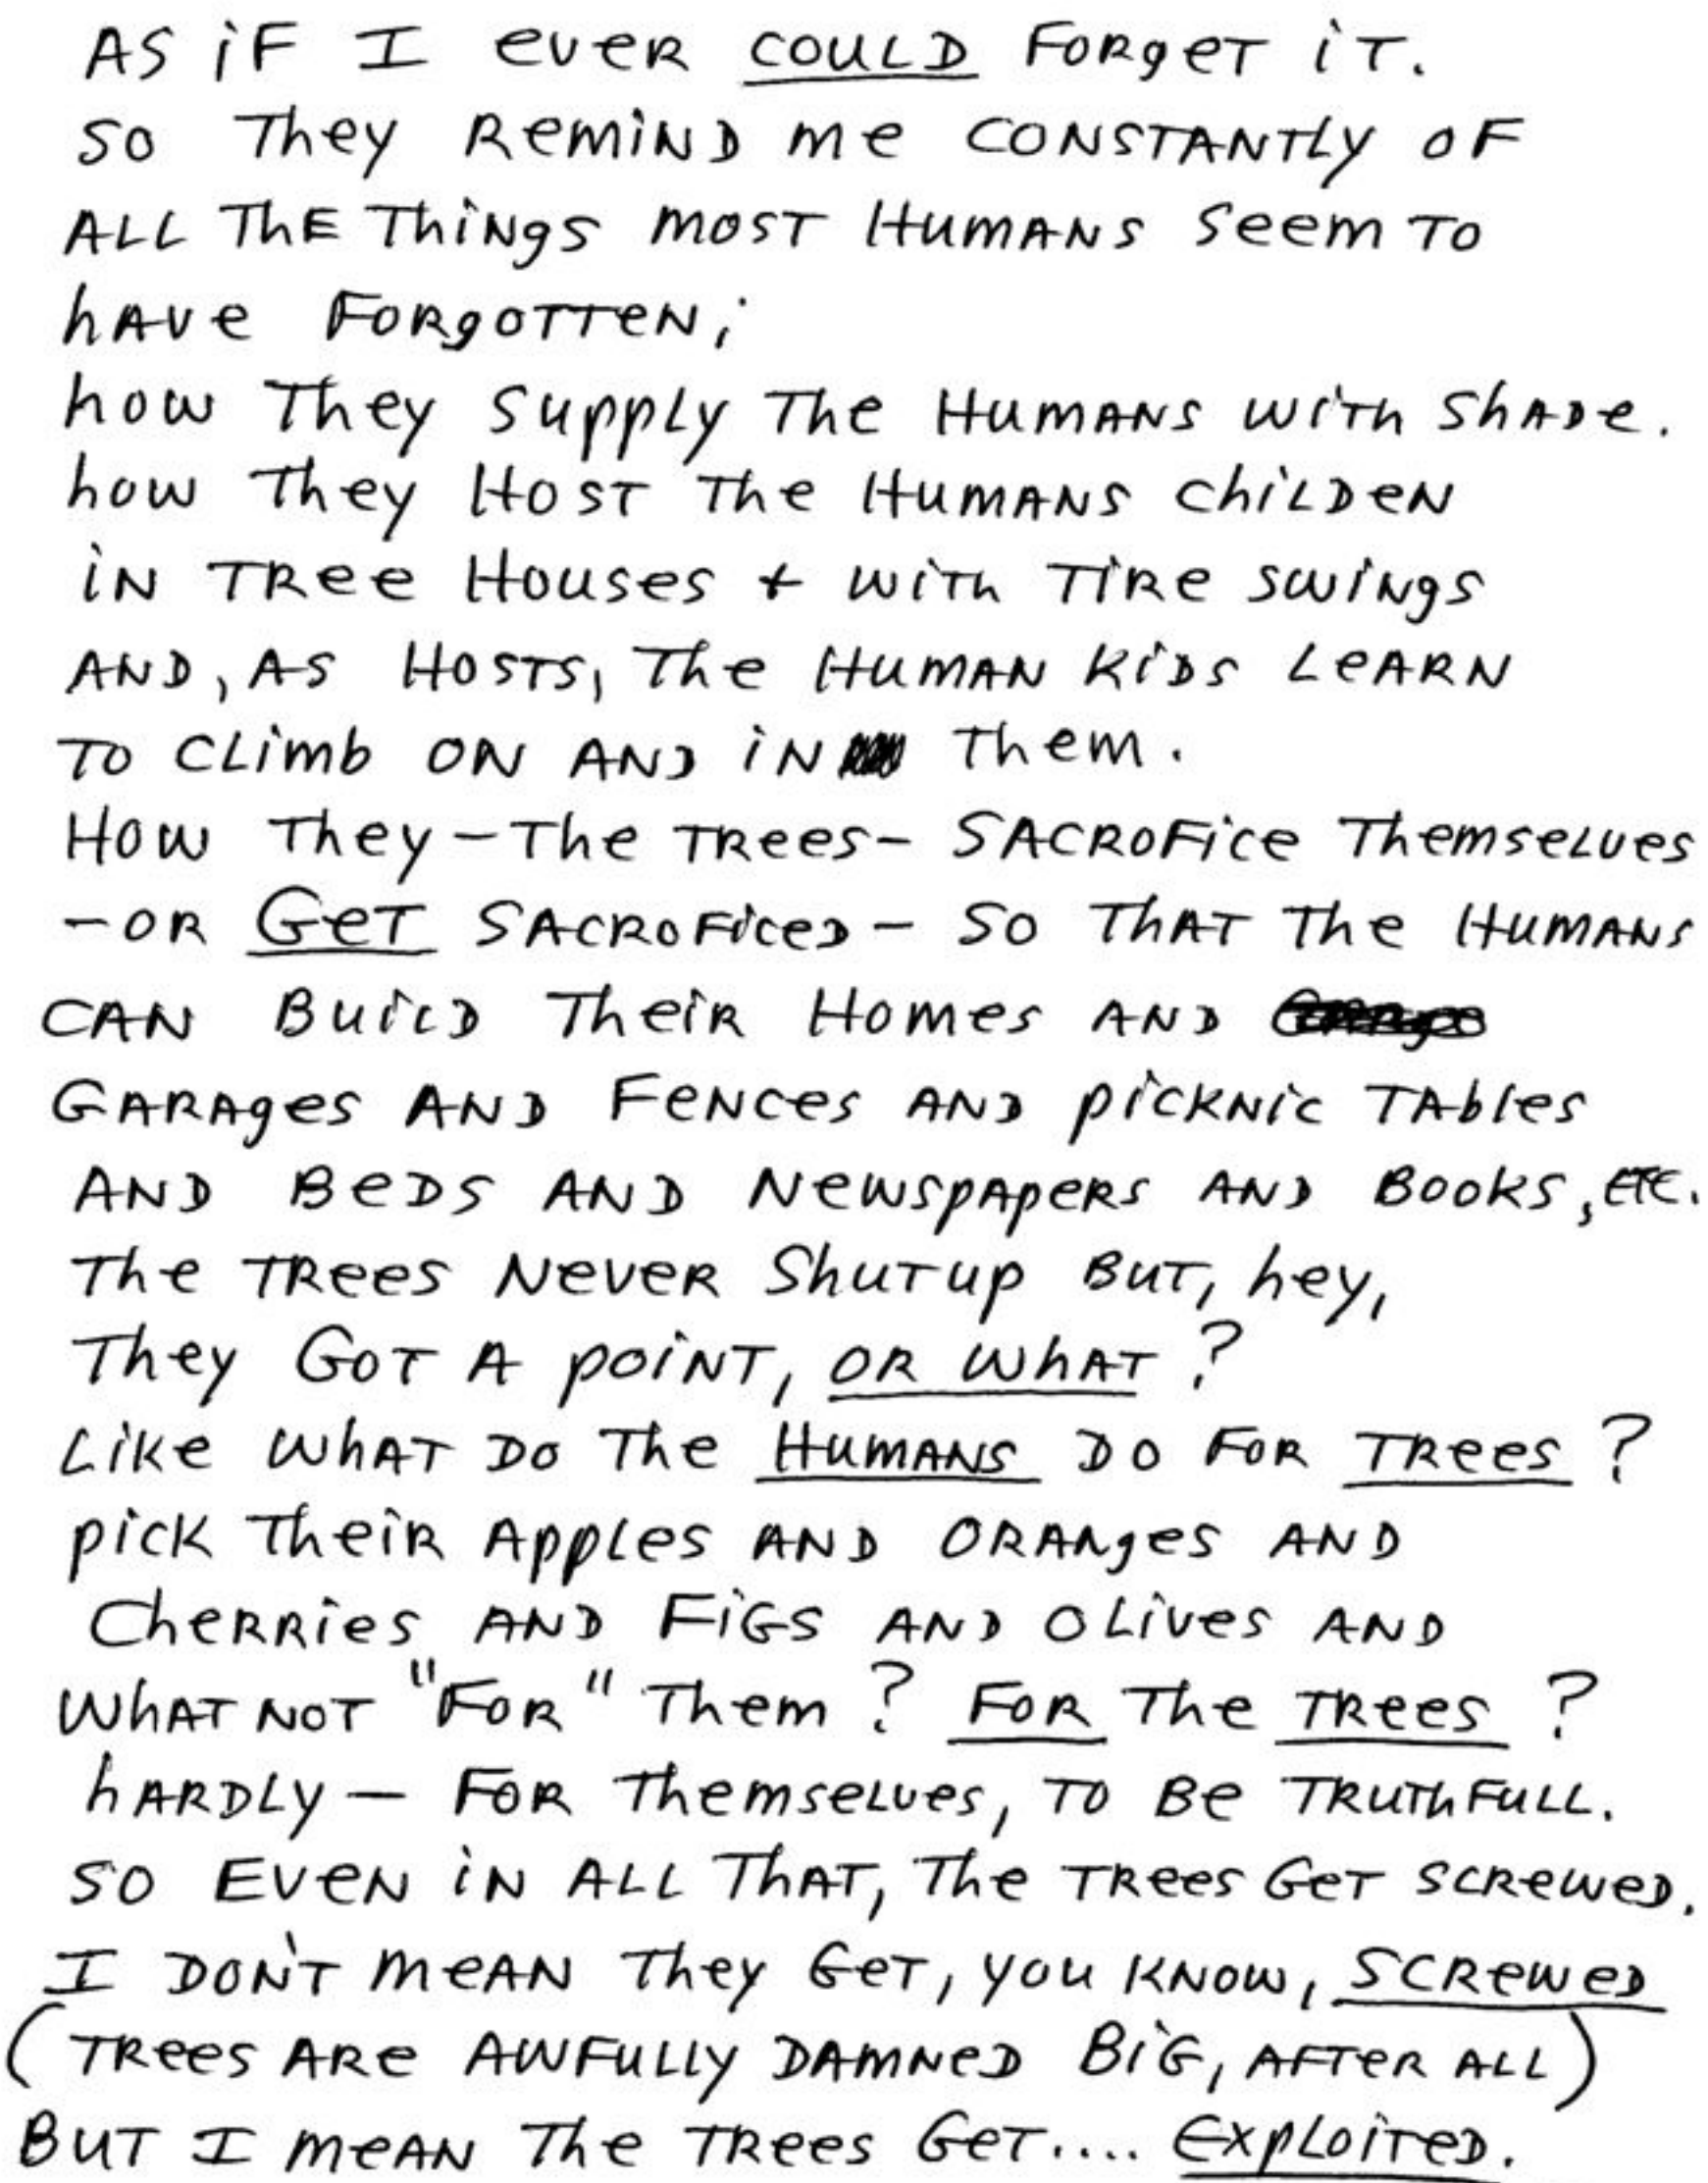 As if I ever could forget it.
So they remind me constantly of
all the things most humans seem to
have forgotten;
how they supply the humans with shade.
how they host the humans childen
in tree houses + with tire swings
and, as hosts, the human kids learn
to climb on and in them.
How they - the trees - sacrofice themselves
- or get sacroficed - so that the humans
can build their homes and
garages and fences and picknic tables
and beds and newspapers and books, etc.
The trees never shut up but, hey,
they got a point, or what?
Like what do the humans do for trees?
pick their apples and oranges and
cherries and figs and olives and
what not "for" them? For the trees?
hardly — for themselves, to be truthfull.
So even in all that, the trees get screwed.
I don't mean they get, you know, screwed
(trees are awfully damned big, after all)
But I mean the trees get.... exploited.